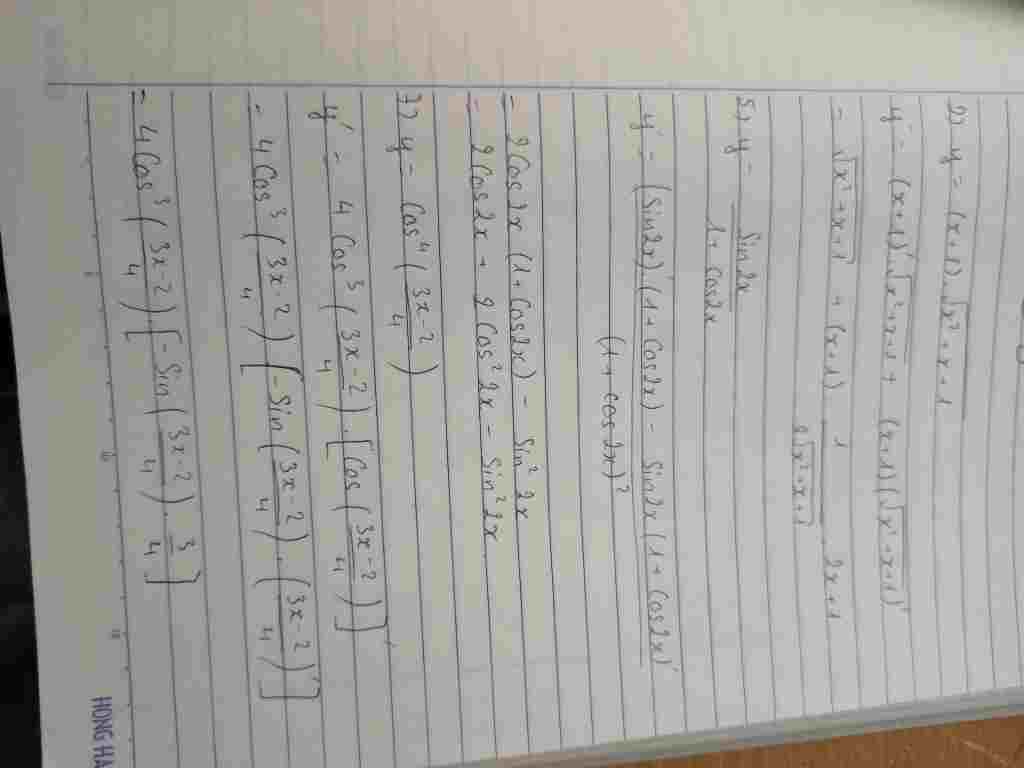 2) y = (x+1).√(x²+x+1)
y' = (x+1)'.√(x²+x+1) + (x+1)(√(x²+x+1))'
= √(x²+x+1) + (x+1). 1/(2√(x²+x+1)) . 2x+1
5) y = sin2x/(1+cos2x)
y' = ((sin2x)'(1+cos2x) - sin2x(1+cos2x)')/(1+cos2x)²
= 2cos2x(1+cos2x) - sin²2x
= 2cos2x + 2cos²2x - sin²2x
7) y = cos⁴((3x-2)/4)
y' = 4cos³((3x-2)/4).[cos((3x-2)/4)]'
= 4cos³((3x-2)/4)[-sin((3x-2)/4).((3x-2)/4)']
= 4cos³((3x-2)/4).[-sin((3x-2)/4).3/4]
HONG HA